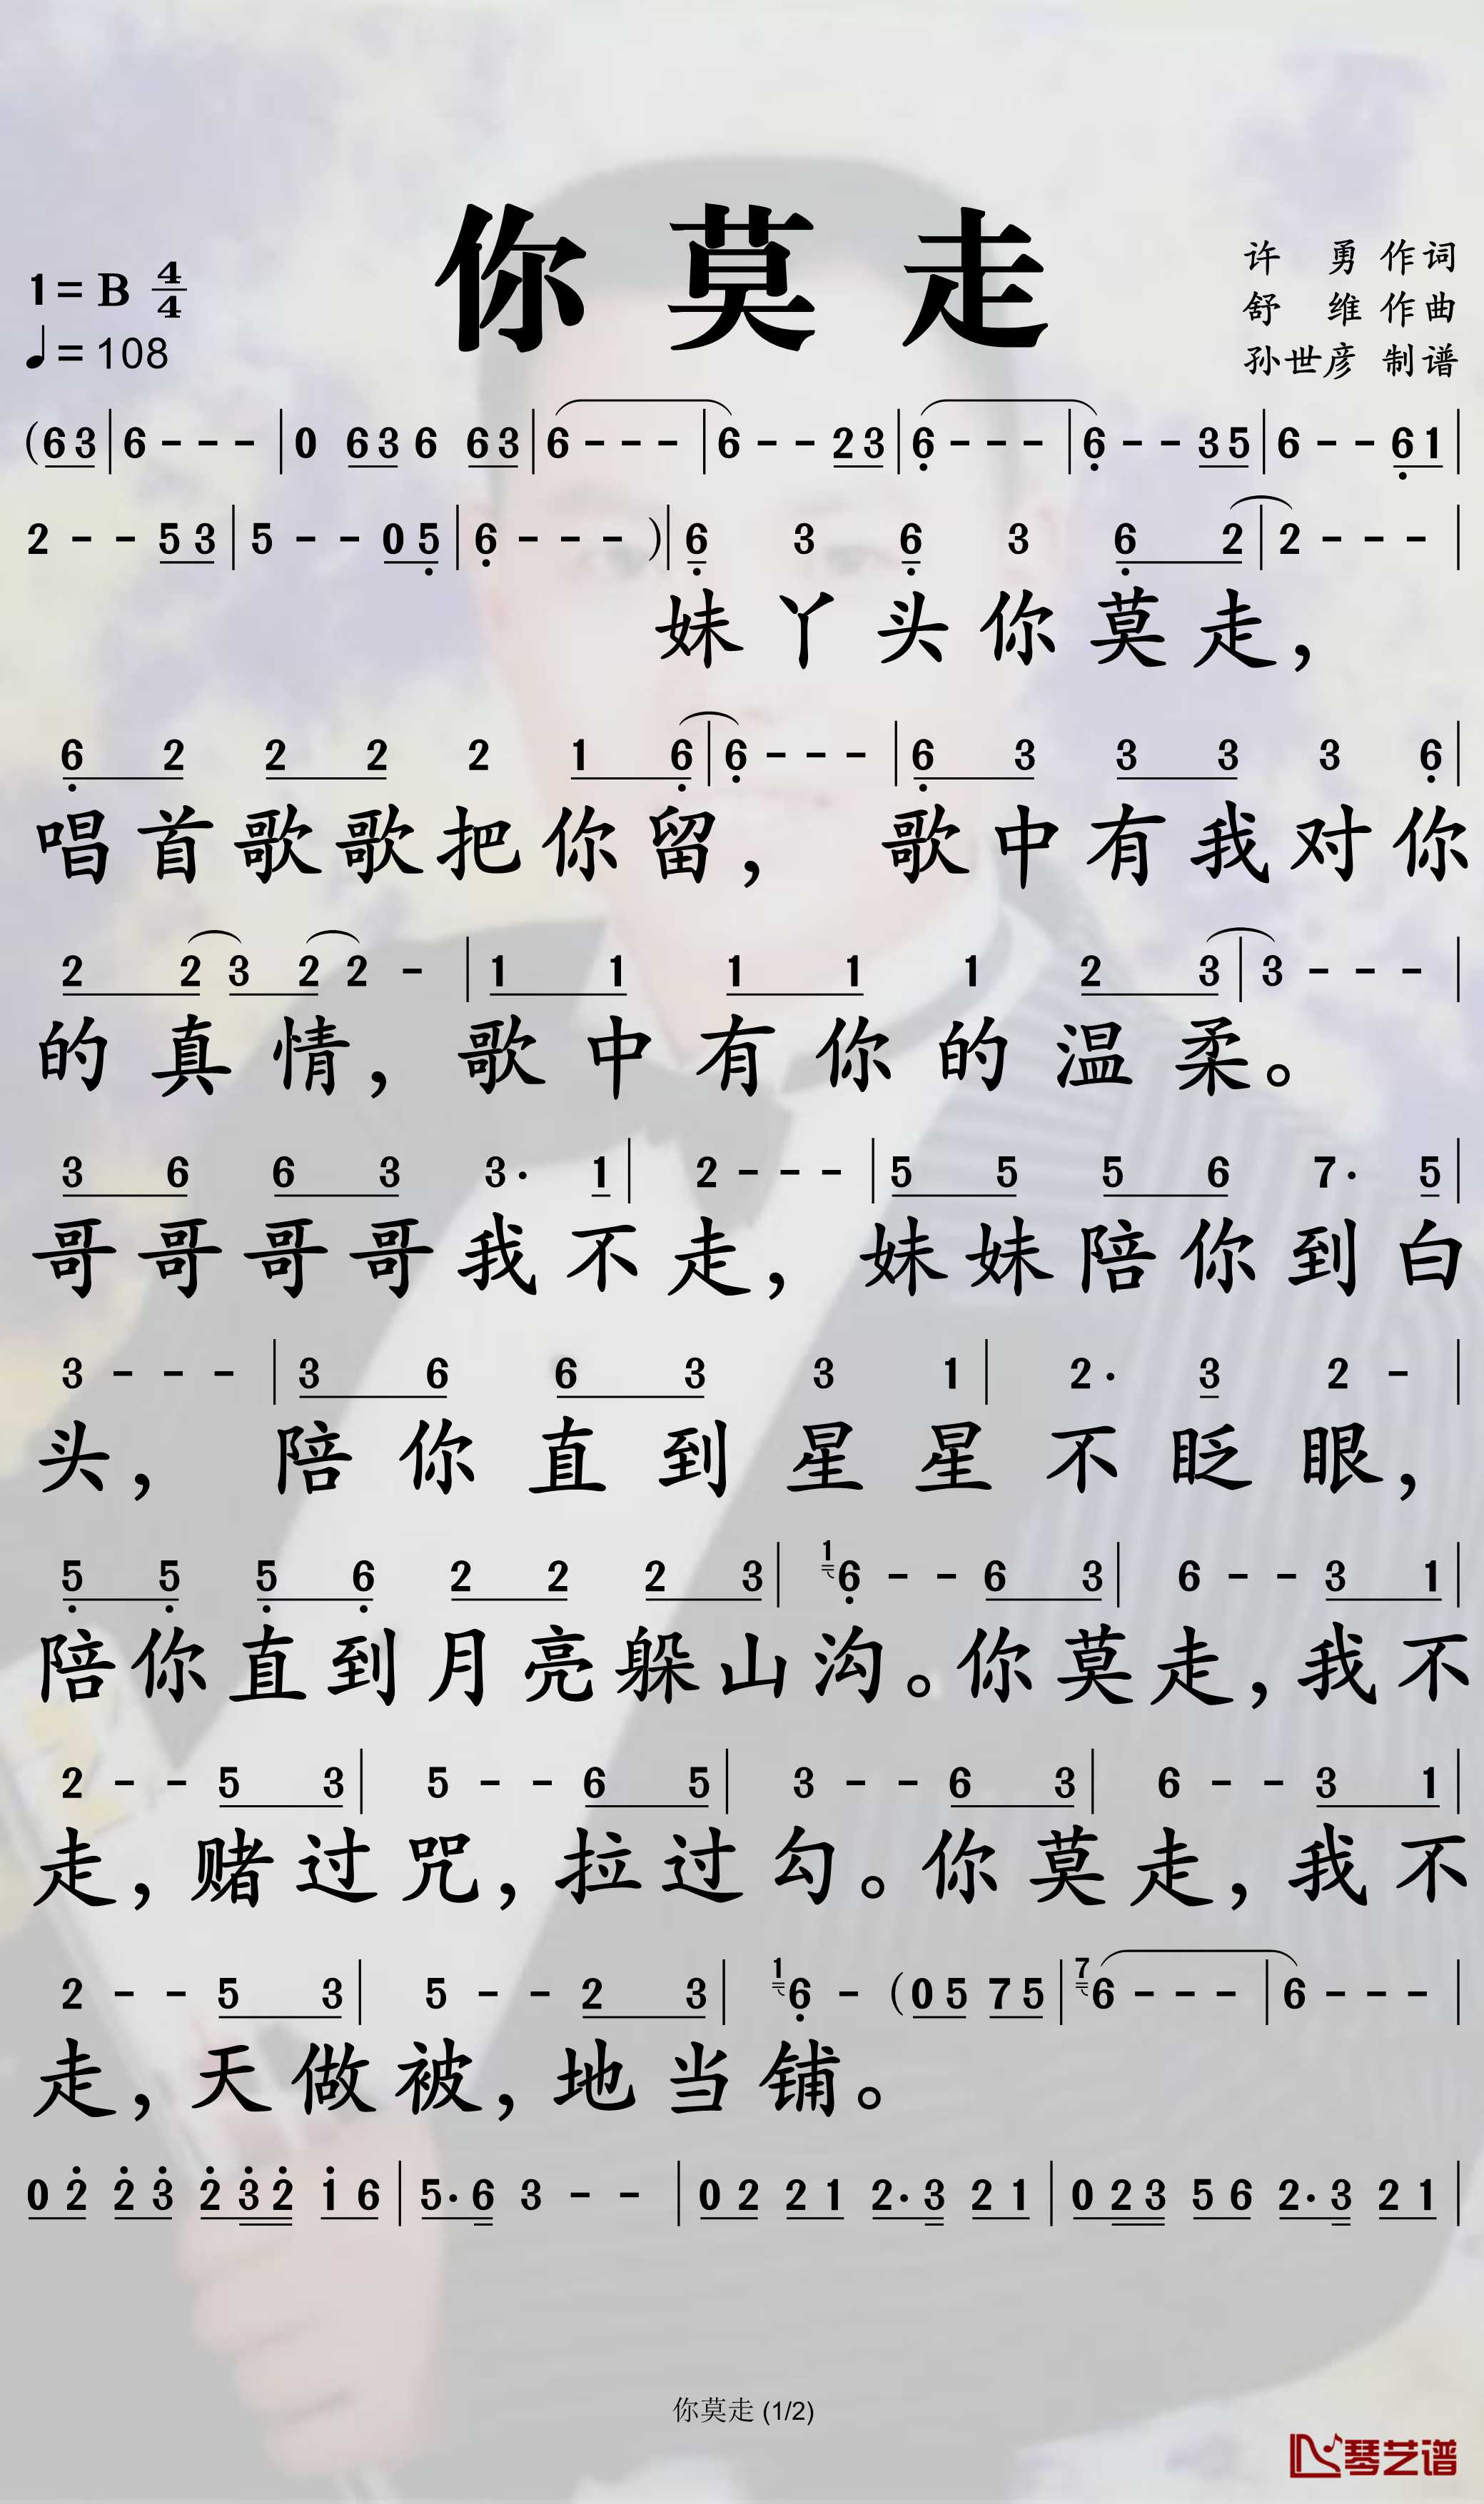 你莫走
1=B 4/4
♩=108
许 勇 作词
舒 维 作曲
孙世彦 制谱
(6 3 | 6 - - - | 0 6 3 6 6 3 | 6 - - - | 6 - - 2 3 | 6 - - - | 6 - - 3 5 | 6 - - 6 1 |
2 - - 5 3 | 5 - - 0 5 | 6 - - - ) | 6 3 6 3 6 2 | 2 - - - |
妹丫头你莫走，
6 2 2 2 2 1 6 | 6 - - - | 6 3 3 3 3 6 |
唱首歌歌把你留， 歌中有我对你
2 2 3 2 2 - | 1 1 1 1 1 2 3 | 3 - - - |
的真情，歌中有你的温柔。
3 6 6 3 3· 1 | 2 - - - | 5 5 5 6 7· 5 |
哥哥哥哥我不走，妹妹陪你到白
3 - - - | 3 6 6 3 3 1 | 2· 3 2 - |
头， 陪你直到星星不眨眼，
5 5 5 6 2 2 2 3 | 1 6 - - 6 3 | 6 - - 3 1 |
陪你直到月亮躲山沟。你莫走，我不
2 - - 5 3 | 5 - - 6 5 | 3 - - 6 3 | 6 - - 3 1 |
走，赌过咒，拉过勾。你莫走，我不
2 - - 5 3 | 5 - - 2 3 | 1 6 - (0 5 7 5 | 7 6 - - - | 6 - - - |
走，天做被，地当铺。
0 2 2 3 2 3 2 1 6 | 5· 6 3 - - | 0 2 2 1 2· 3 2 1 | 0 2 3 5 6 2· 3 2 1 |
你莫走 (1/2)
琴艺谱